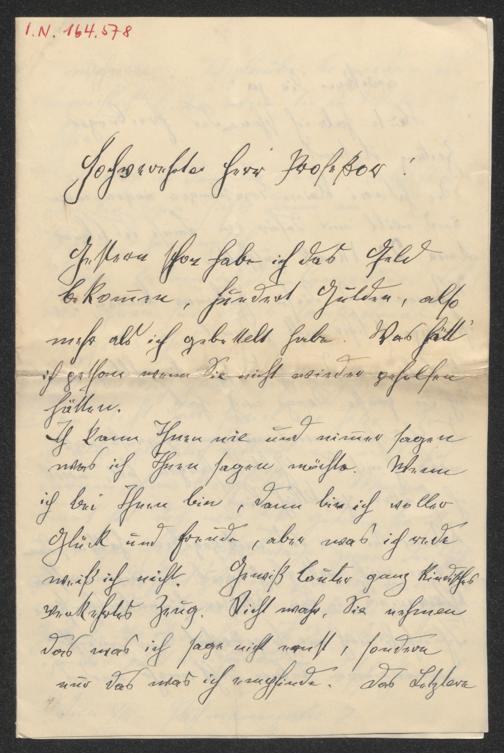 I.N. 164.578
Hochverehrter Herr Professor!
Gestern schon habe ich das Geld
bekommen, hundert Gulden, also
mehr als ich gebettelt habe. Was hätt'
ich gethan wenn Sie nicht wieder geholfen
hätten.
Ich kann Ihnen nie und nimmer sagen
was ich Ihnen sagen möchte. Wenn
ich bei Ihnen bin, dann bin ich voller
Glück und Freude, aber was ich rede
weiß ich nicht. Gewiß lauter ganz kindisches
verkehrtes Zeug. Nicht wahr, Sie nehmen
das was ich sage nicht ernst, sondern
nur das was ich empfinde. Das Letztere